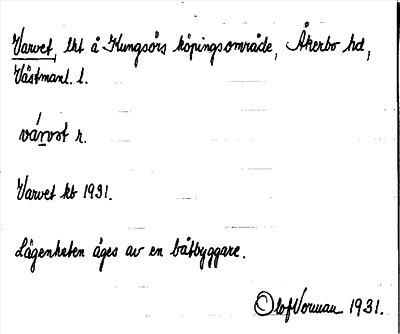 Varvet, lht å Kungsörs köpingsområde, Åkerbo hd,
Västmanl. l.
várvət r.
Varvet kb 1931.
Lägenheten äges av en båtbyggare.
Olof Vorman 1931.